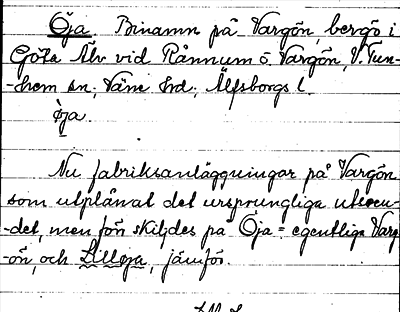 Öja Binamn på Vargön, bergö i
Göta Älv vid Rånnum o. Vargön, V. Tun-
-hem sn, Väne hd, Älfsborgs l.
öja.
Nu fabriksanläggningar på Vargön
som utplånat det ursprungliga utseen-
-det, men förr skiljdes på Öja = egentliga Varg-
-ön, och Lilleja, jämför.